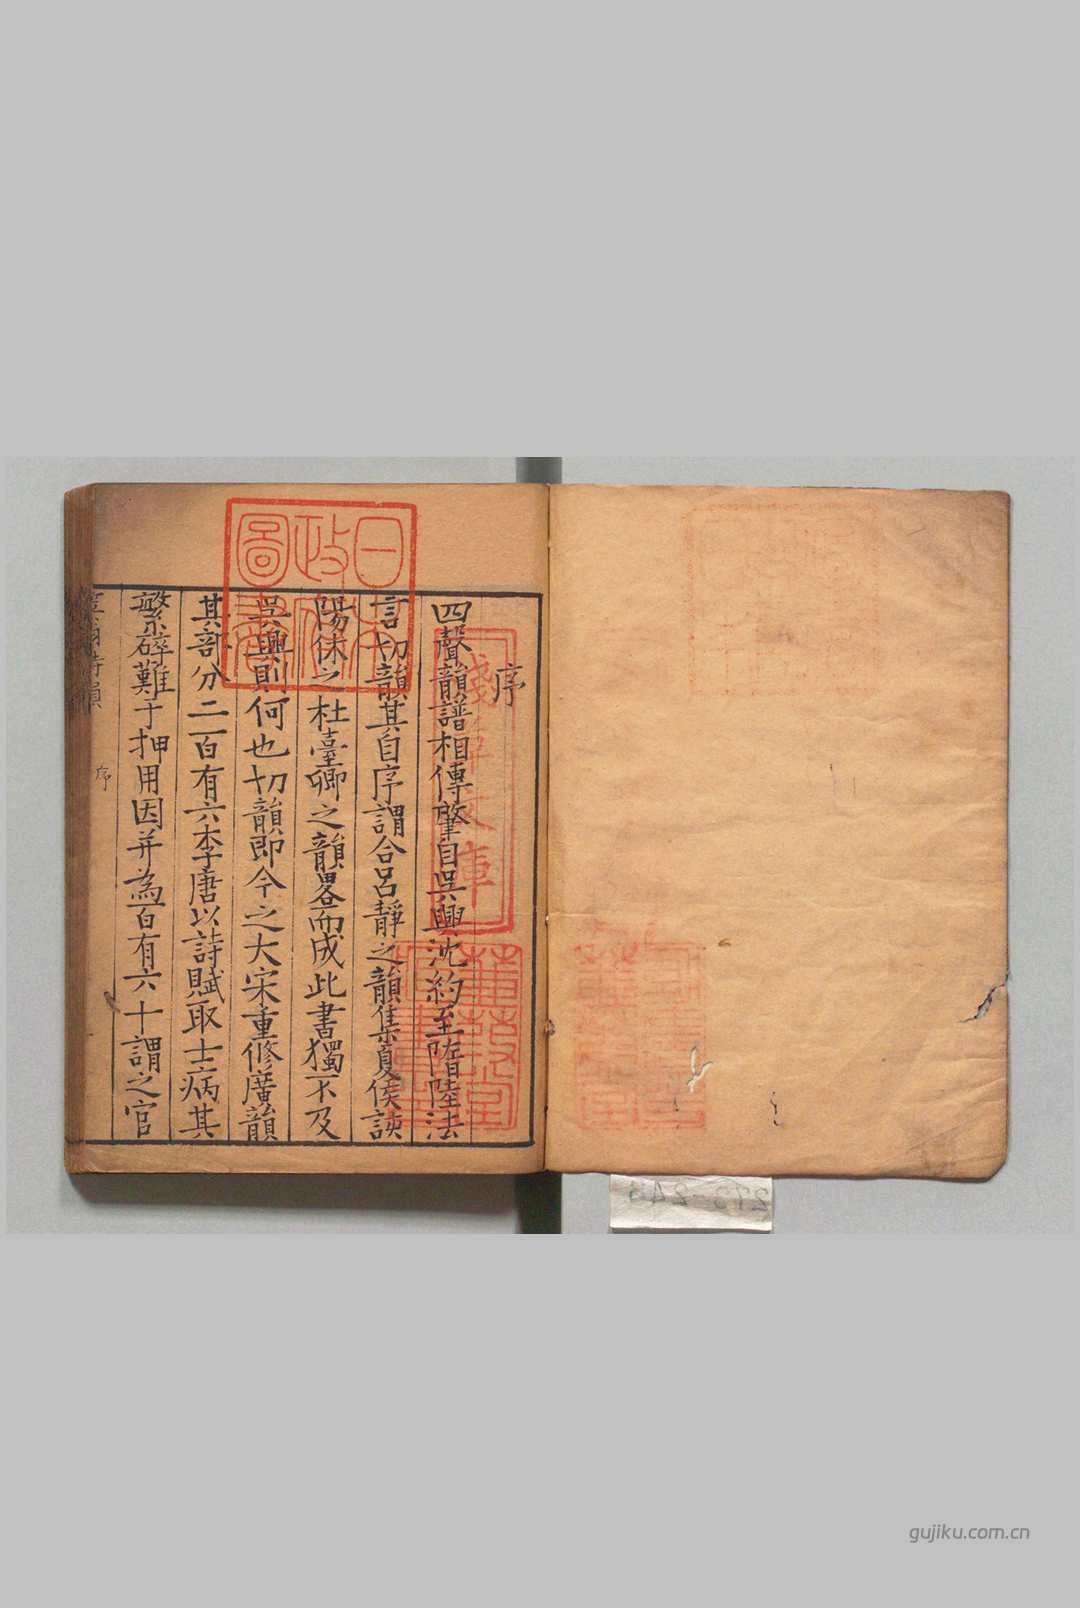 序
四聲韻譜相傳肇自吳興沈約至隋陸法
言切韻其自序謂合呂靜之韻集夏侯詠
陽休之杜臺卿之韻畧而成此書獨不及
吳興則何也切韻即今之大宋重修廣韻
其部分二百有六李唐以詩賦取士病其
繁碎難于押用因并為百有六十謂之官
詩韻
序
日本政府圖書
淺草文庫
蒹葭堂
gujiku.com.cn